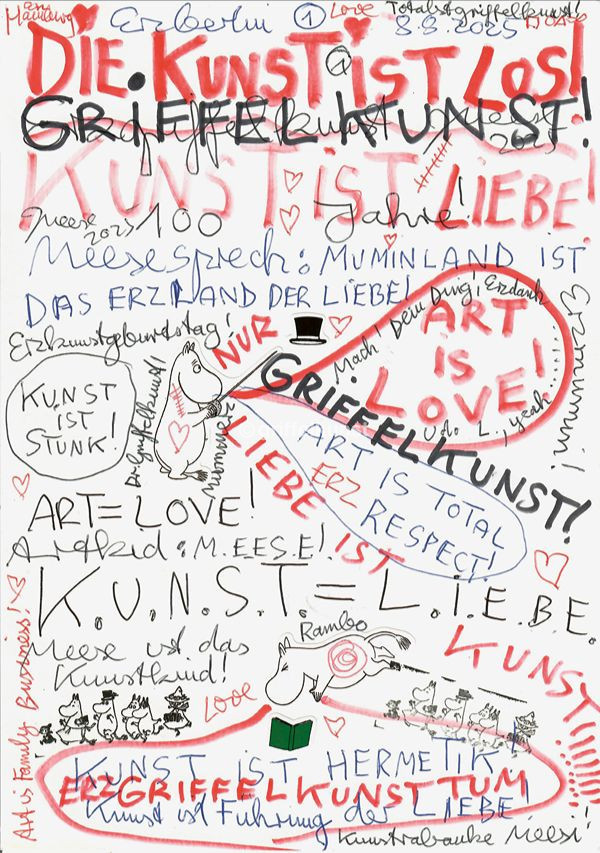 Erzberlin ① Love Totalstgriffelkunst!
8.8.2025
DIE KUNST IST LOS!
①
GRIFFELKUNST!
2025
KUNST IST LIEBE!
Meese 2025 100 Jahre!
Meesesprech: MUMINLAND IST
DAS ERZLAND DER LIEBE!
Erzkunstgeburtstag!
NUR
LIEBE IST
KUNST!!!!!
Mach! Dein Ding! Erzdank
ART
IS
LOVE!
Udo L., yeah.....
Erzmumum!
KUNST
IST
STUNK!
GRIFFELKUNST!
ART IS TOTAL
ERZ
RESPECT!
ART = LOVE!
Artkid: M.EESE!
K.U.N.S.T. = L.I.E.B.E.
Meese ist das
Kunstkind!
Rambo
Love
Art is Family Business!
KUNST IST HERMETIK!
ERZGRIFFELKUNSTTUM
Kunst ist Führung der LIEBE!
Kunstrabauke Meese!